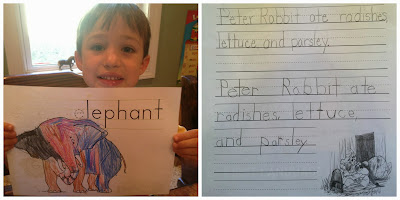 elephant
Peter Rabbit ate radishes,
lettuce and parsley.
Peter Rabbit ate
radishes, lettuce,
and parsley